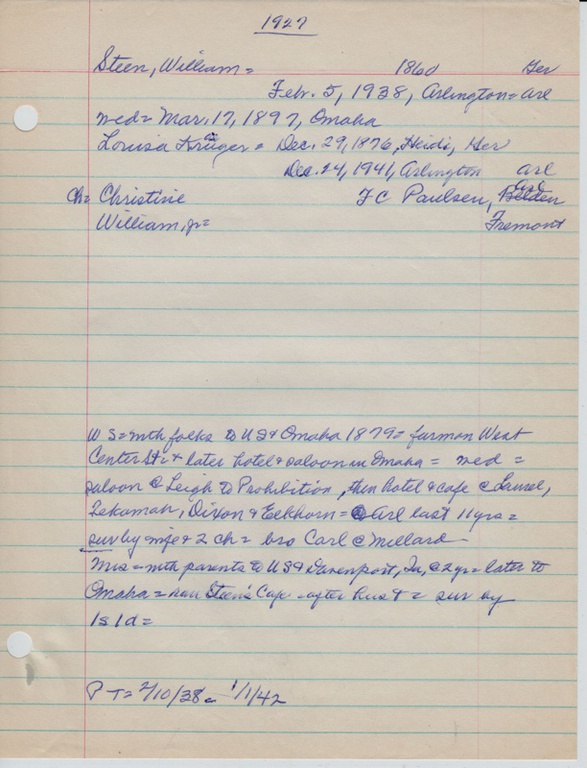 1927
Steen, William = 1860 Ger
Feb. 5, 1938, Arlington = Arl
wed = Mar. 17, 1897, Omaha
Louisa Kruger = Dec. 29, 1876, Heidi, Ger
Dec. 24, 1941, Arlington Arl
Ch = Christine F C Paulsen, Arl
William, Jr = Fremont
W S = with folks to US & Omaha 1879 = farm on West
Center St & later hotel & saloon in Omaha = wed =
saloon @ Leigh to Prohibition, then hotel & cafe @ Laurel,
Tekamah, Dixon & Elkhorn = @ Arl last 11 yrs =
sur by wife & 2 ch = bro Carl @ Millard
Mrs = with parents to US & Davenport, Ia, @ 2 yr = later to
Omaha = ran Steen's Cafe after hus + = sur by
1s 1d =
P T = 2/10/38 1/1/42